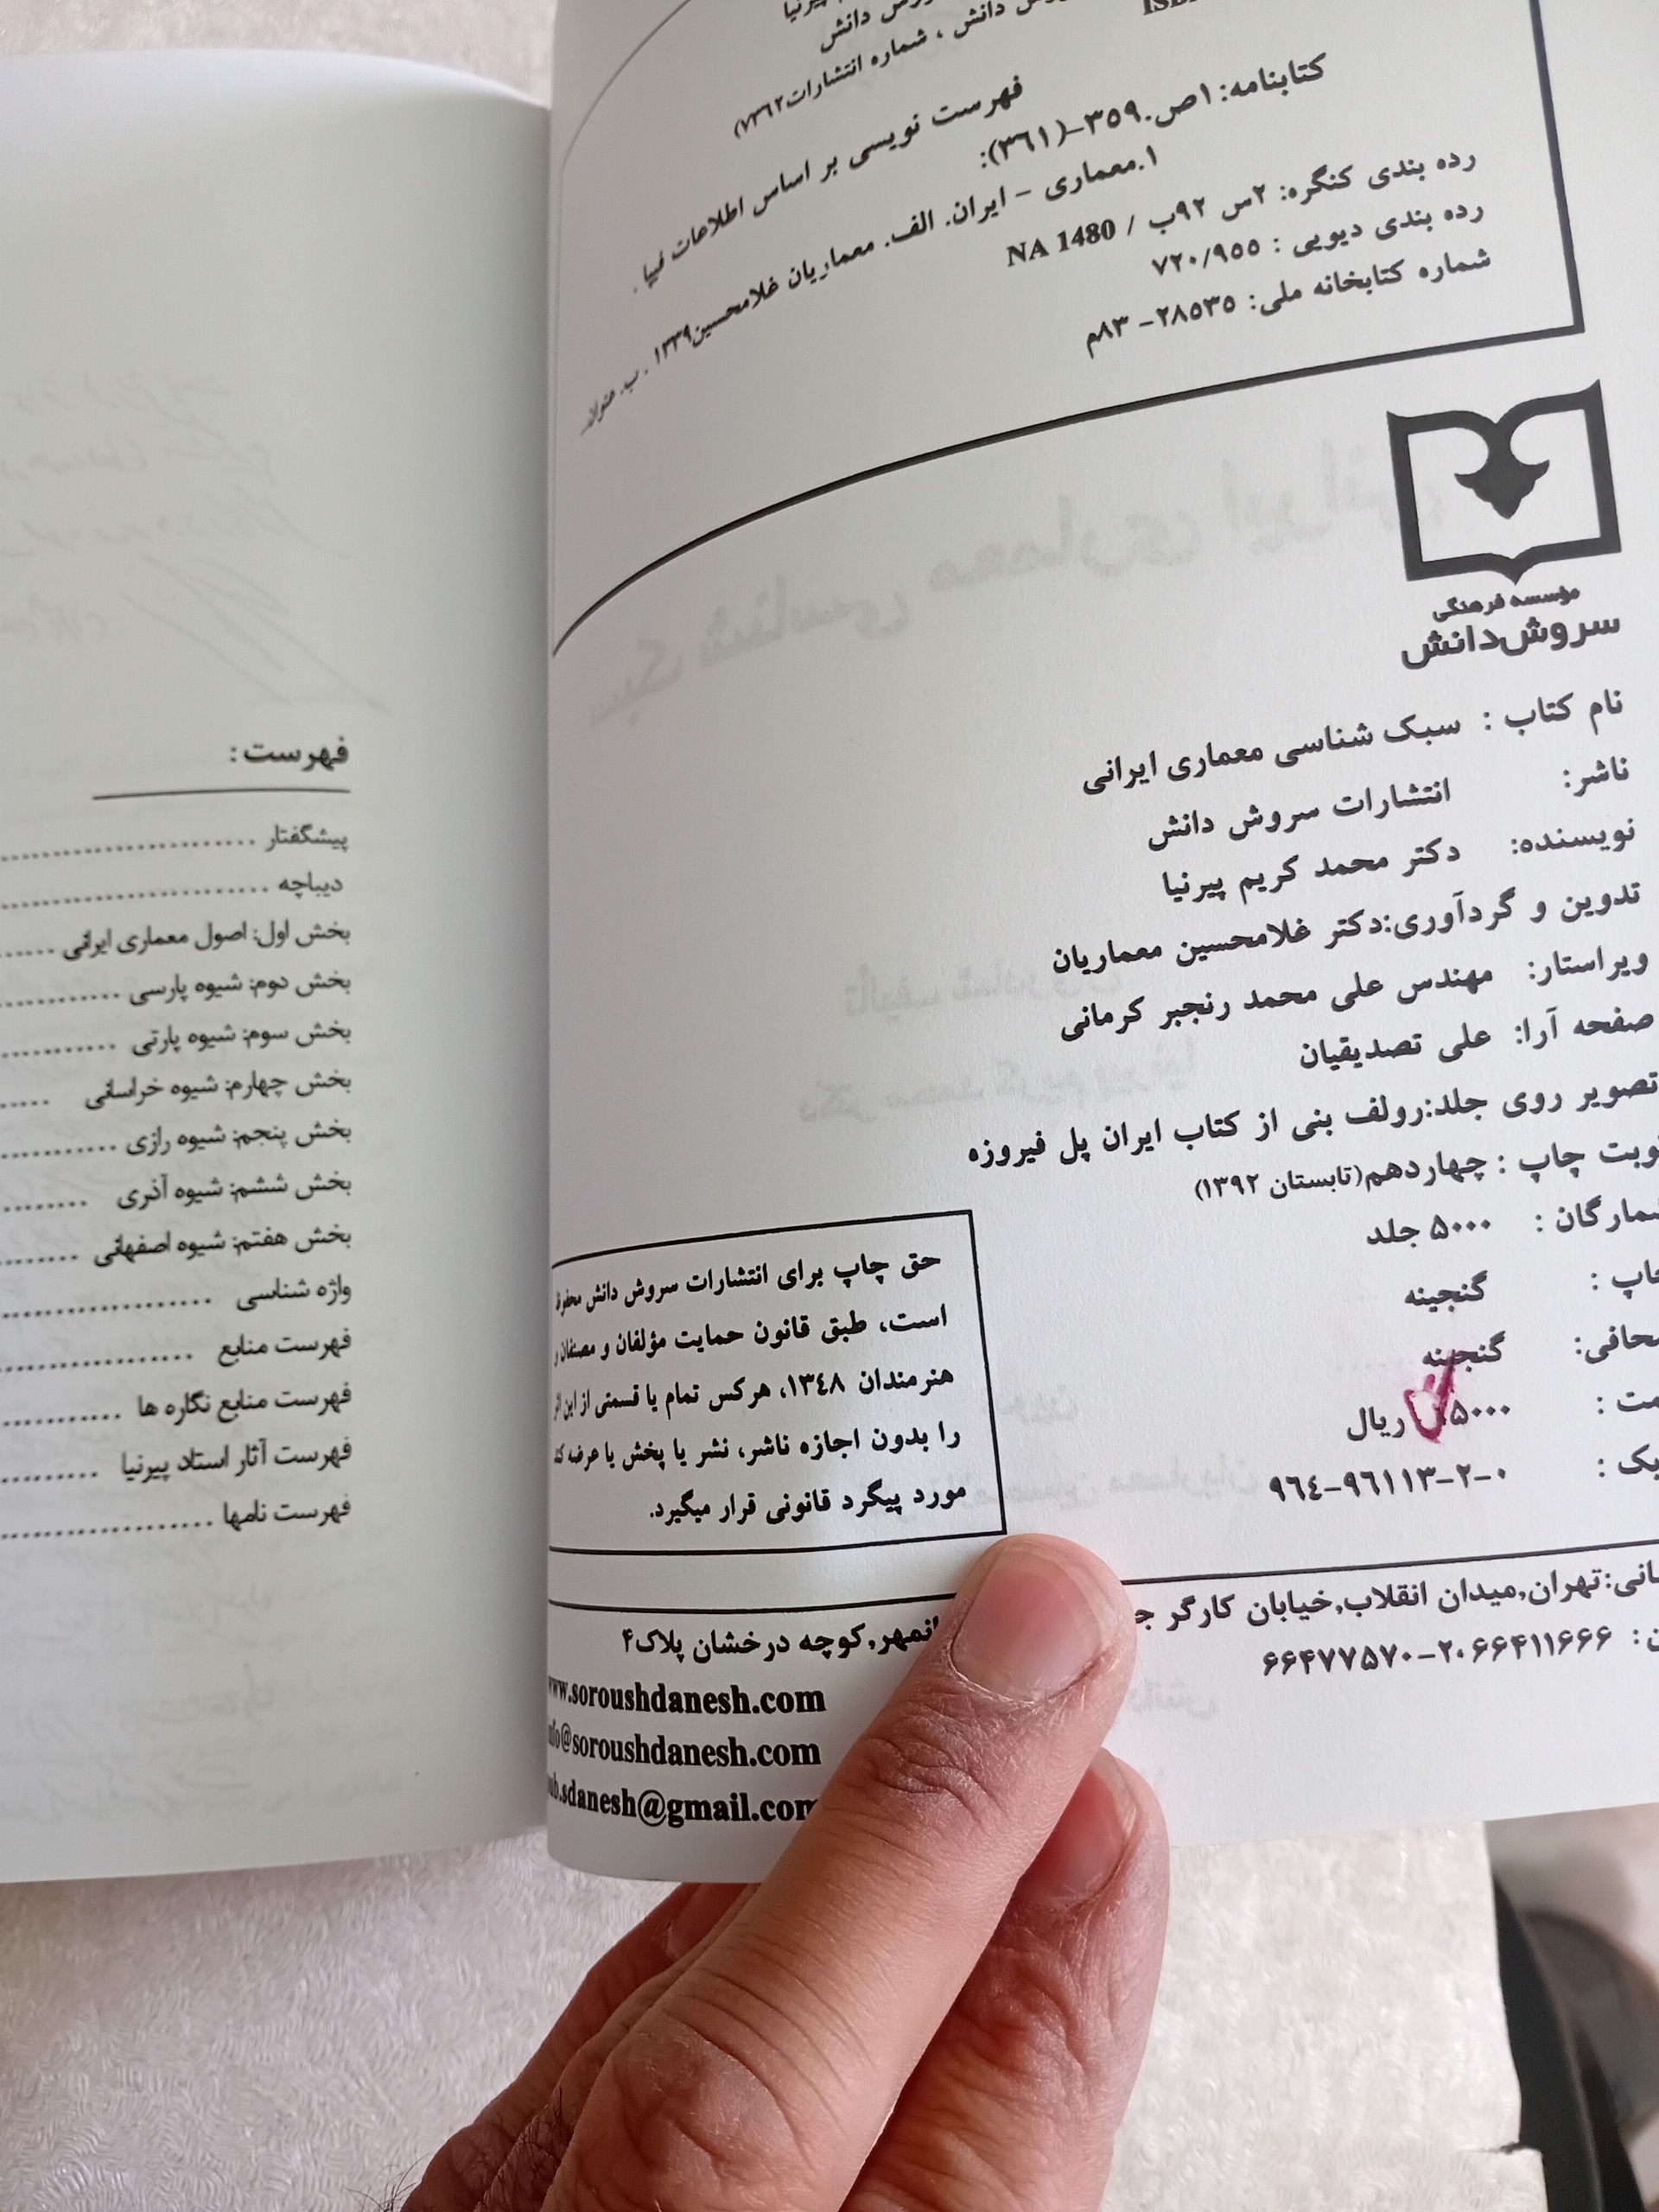 پیرنیا
دانش
دانش ، شماره انتشارات ۷۳٦۲)
فهرست نویسی بر اساس اطلاعات فیپا .
کتابنامه: ۱ص.۳٥۹-(۳٦۱):
۱.معماری - ایران. الف. معماریان غلامحسین۱۳۳۹ . ب. عنوان.
رده بندی کنگره: ۲س ۹۲ب / NA 1480
رده بندی دیویی : ۷۲۰/۹٥٥
شماره کتابخانه ملی: ۲۸٥۳٥- ۸۳م
مؤسسه فرهنگی
سروش‌دانش
نام کتاب : سبک شناسی معماری ایرانی
ناشر: انتشارات سروش دانش
نویسنده: دکتر محمد کریم پیرنیا
تدوین و گردآوری:دکتر غلامحسین معماریان
ویراستار: مهندس علی محمد رنجبر کرمانی
صفحه آرا: علی تصدیقیان
تصویر روی جلد:رولف بنی از کتاب ایران پل فیروزه
چاپ : چهاردهم(تابستان ۱۳۹۲)
۵۰۰۰ جلد
گنجینه
گنجینه
ریال
۹٦٤-۹٦۱۱۳-۲-۰
حق چاپ برای انتشارات سروش دانش
است، طبق قانون حمایت مؤلفان و مصنفان و
هنرمندان ۱۳٤۸، هرکس تمام یا قسمتی از این
را بدون اجازه ناشر، نشر یا پخش یا عرضه
مورد پیگرد قانونی قرار میگیرد.
تهران,میدان انقلاب,خیابان کارگر
کوچه درخشان پلاک۴
۶۶۴۷۷۵۷۰-۲۰۶۶۴۱۱۶۶۶
www.soroushdanesh.com
info@soroushdanesh.com
pub.sdanesh@gmail.com
فهرست :
پیشگفتار
دیباچه
بخش اول: اصول معماری ایرانی
بخش دوم: شیوه پارسی
بخش سوم: شیوه پارتی
بخش چهارم: شیوه خراسانی
بخش پنجم: شیوه رازی
بخش ششم: شیوه آذری
بخش هفتم: شیوه اصفهانی
واژه شناسی
فهرست منابع
فهرست منابع نگاره ها
فهرست آثار استاد پیرنیا
فهرست نامها